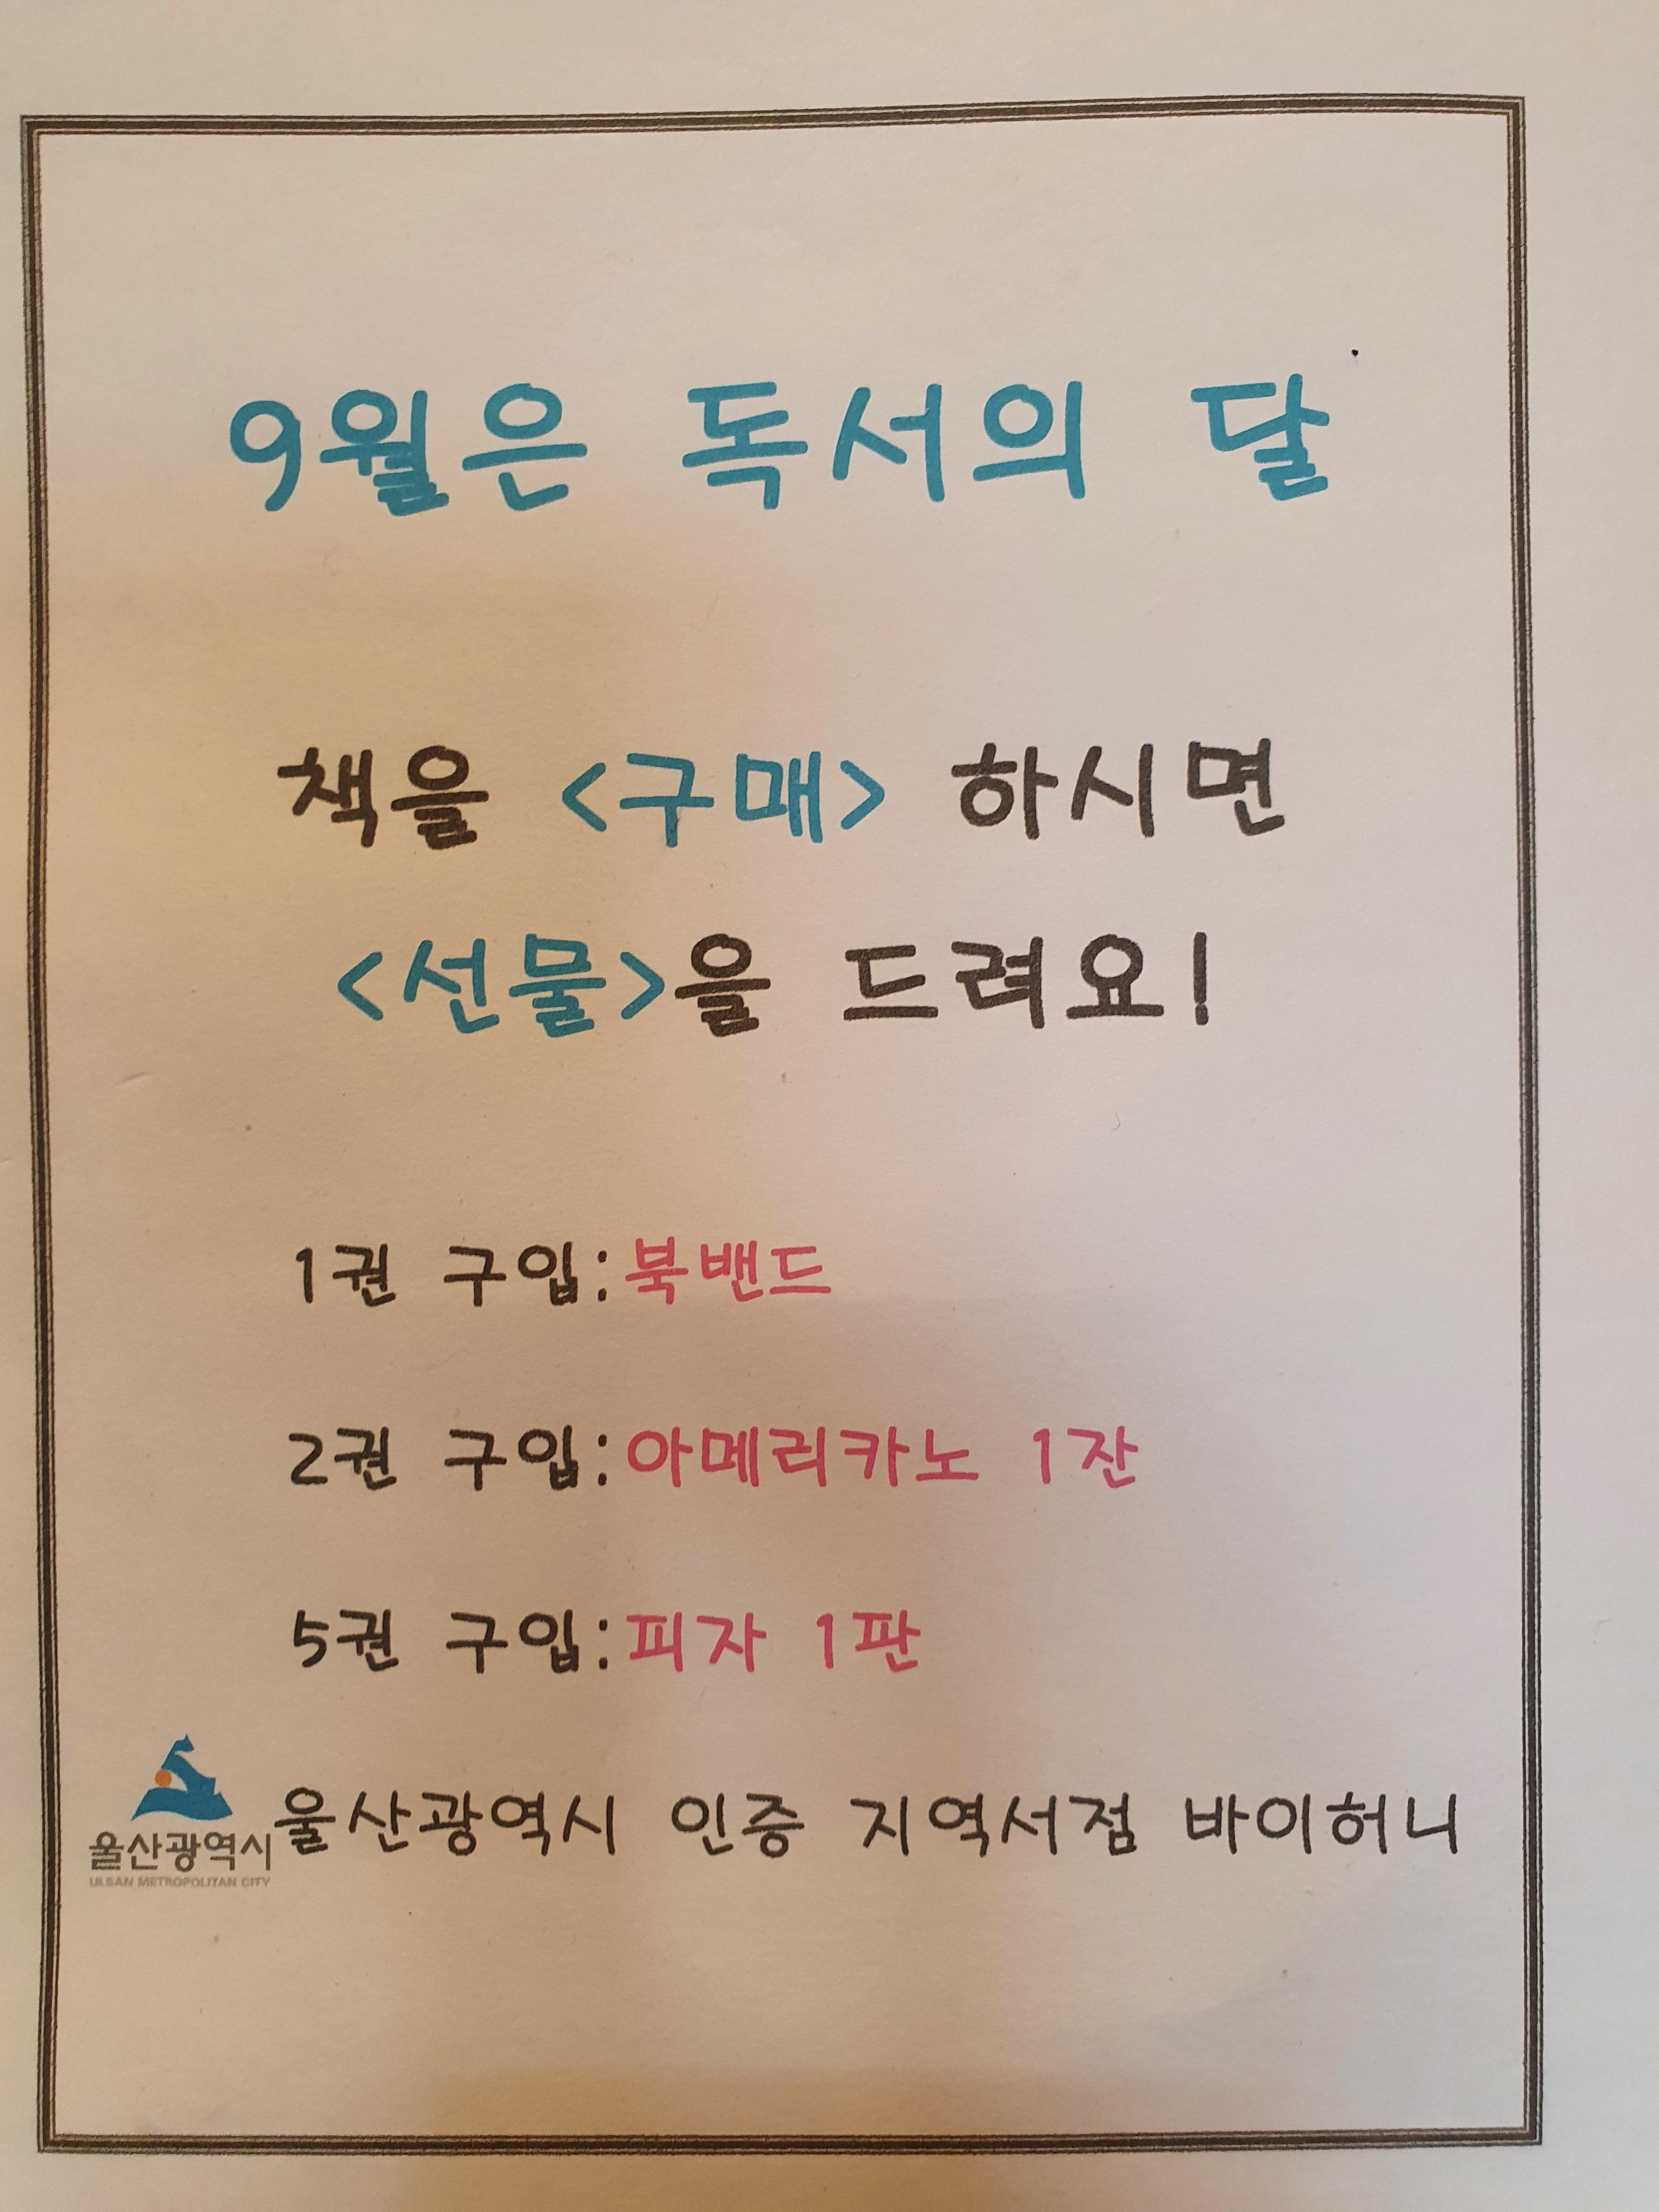 9월은 독서의 달
책을 <구매> 하시면
<선물>을 드려요!
1권 구입:북밴드
2권 구입:아메리카노 1잔
5권 구입:피자 1판
울산광역시 인증 지역서점 바이허니
울산광역시
ULSAN METROPOLITAN CITY